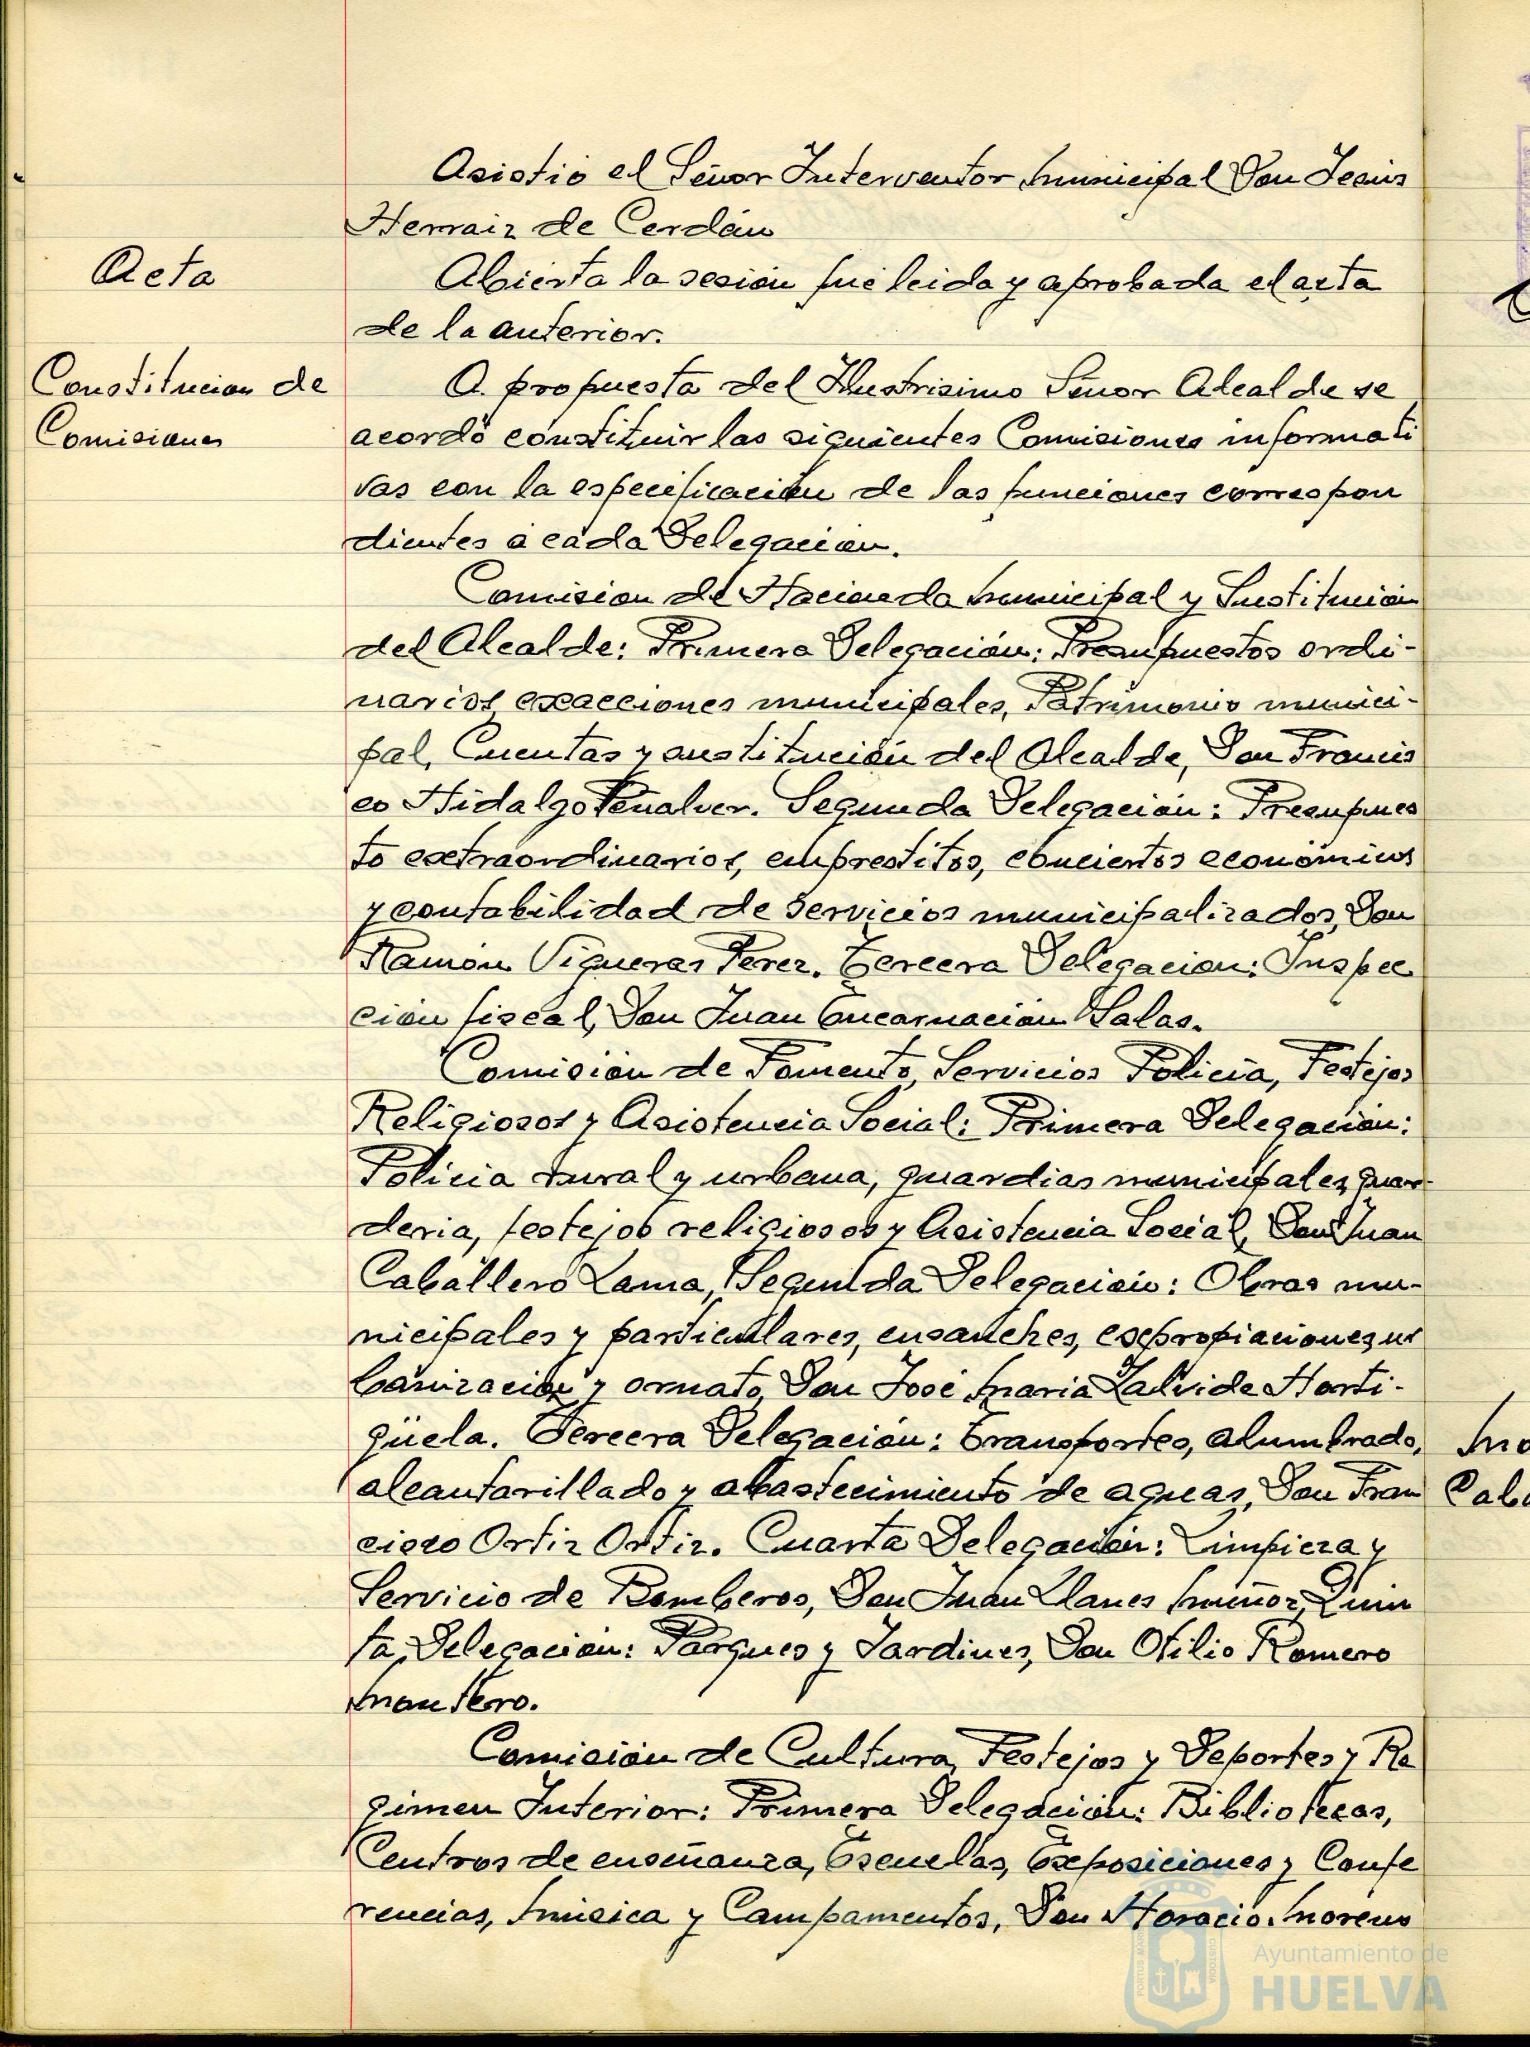 Asistió el Señor Interventor Municipal Don Jesús
Herraiz de Cerdán
Acta
Abierta la sesión fué leida y aprobada el acta
de la anterior.
Constitucion de
Comisiones
A propuesta del Ilustrisimo Señor Alcalde se
acordó constituir las siguientes Comisiones informati
vas con la especificación de las funciones correspon
dientes a cada Delegación.
Comision de Hacienda Municipal y Sustitución
del Alcalde: Primera Delegación: Presupuestos ordi-
narios, exacciones municipales, Patrimonio munici-
pal, Cuentas y sustitución del Alcalde, Don Francis
co Hidalgo Peñalver. Segunda Delegación: Presupues
to extraordinarios, emprestitos, conciertos económicos
y contabilidad de servicios municipalizados, Don
Ramón Vigueras Perez. Tercera Delegacion: Inspec
ción fiscal, Don Juan Encarnación Salas.
Comisión de Fomento, Servicios Policia, Festejos
Religiosos y Asistencia Social: Primera Delegación:
Policia rural y urbana, guardias municipales, guar-
deria, festejos religiosos y Asistencia Social, Don Juan
Caballero Lama, Segunda Delegación: Obras mu-
nicipales y particulares, ensanches, expropiaciones, ur
banización y ornato, Don José Maria Zalvide Horti-
güela. Tercera Delegación: Transportes, alumbrado,
alcantarillado y abastecimiento de aguas, Don Fran
cisco Ortiz Ortiz. Cuarta Delegación: Limpieza y
Servicio de Bomberos, Don Juan Llanes Muñoz, Quin
ta, Delegación: Parques y Jardines, Don Otilio Romero
Montero.
Comisión de Cultura, Festejos y Deportes y Re
gimen Interior: Primera Delegación: Bibliotecas,
Centros de enseñanza, Escuelas, Exposiciones y Confe
rencias, Música y Campamentos, Don Horacio Moreno
Ayuntamiento de
HUELVA